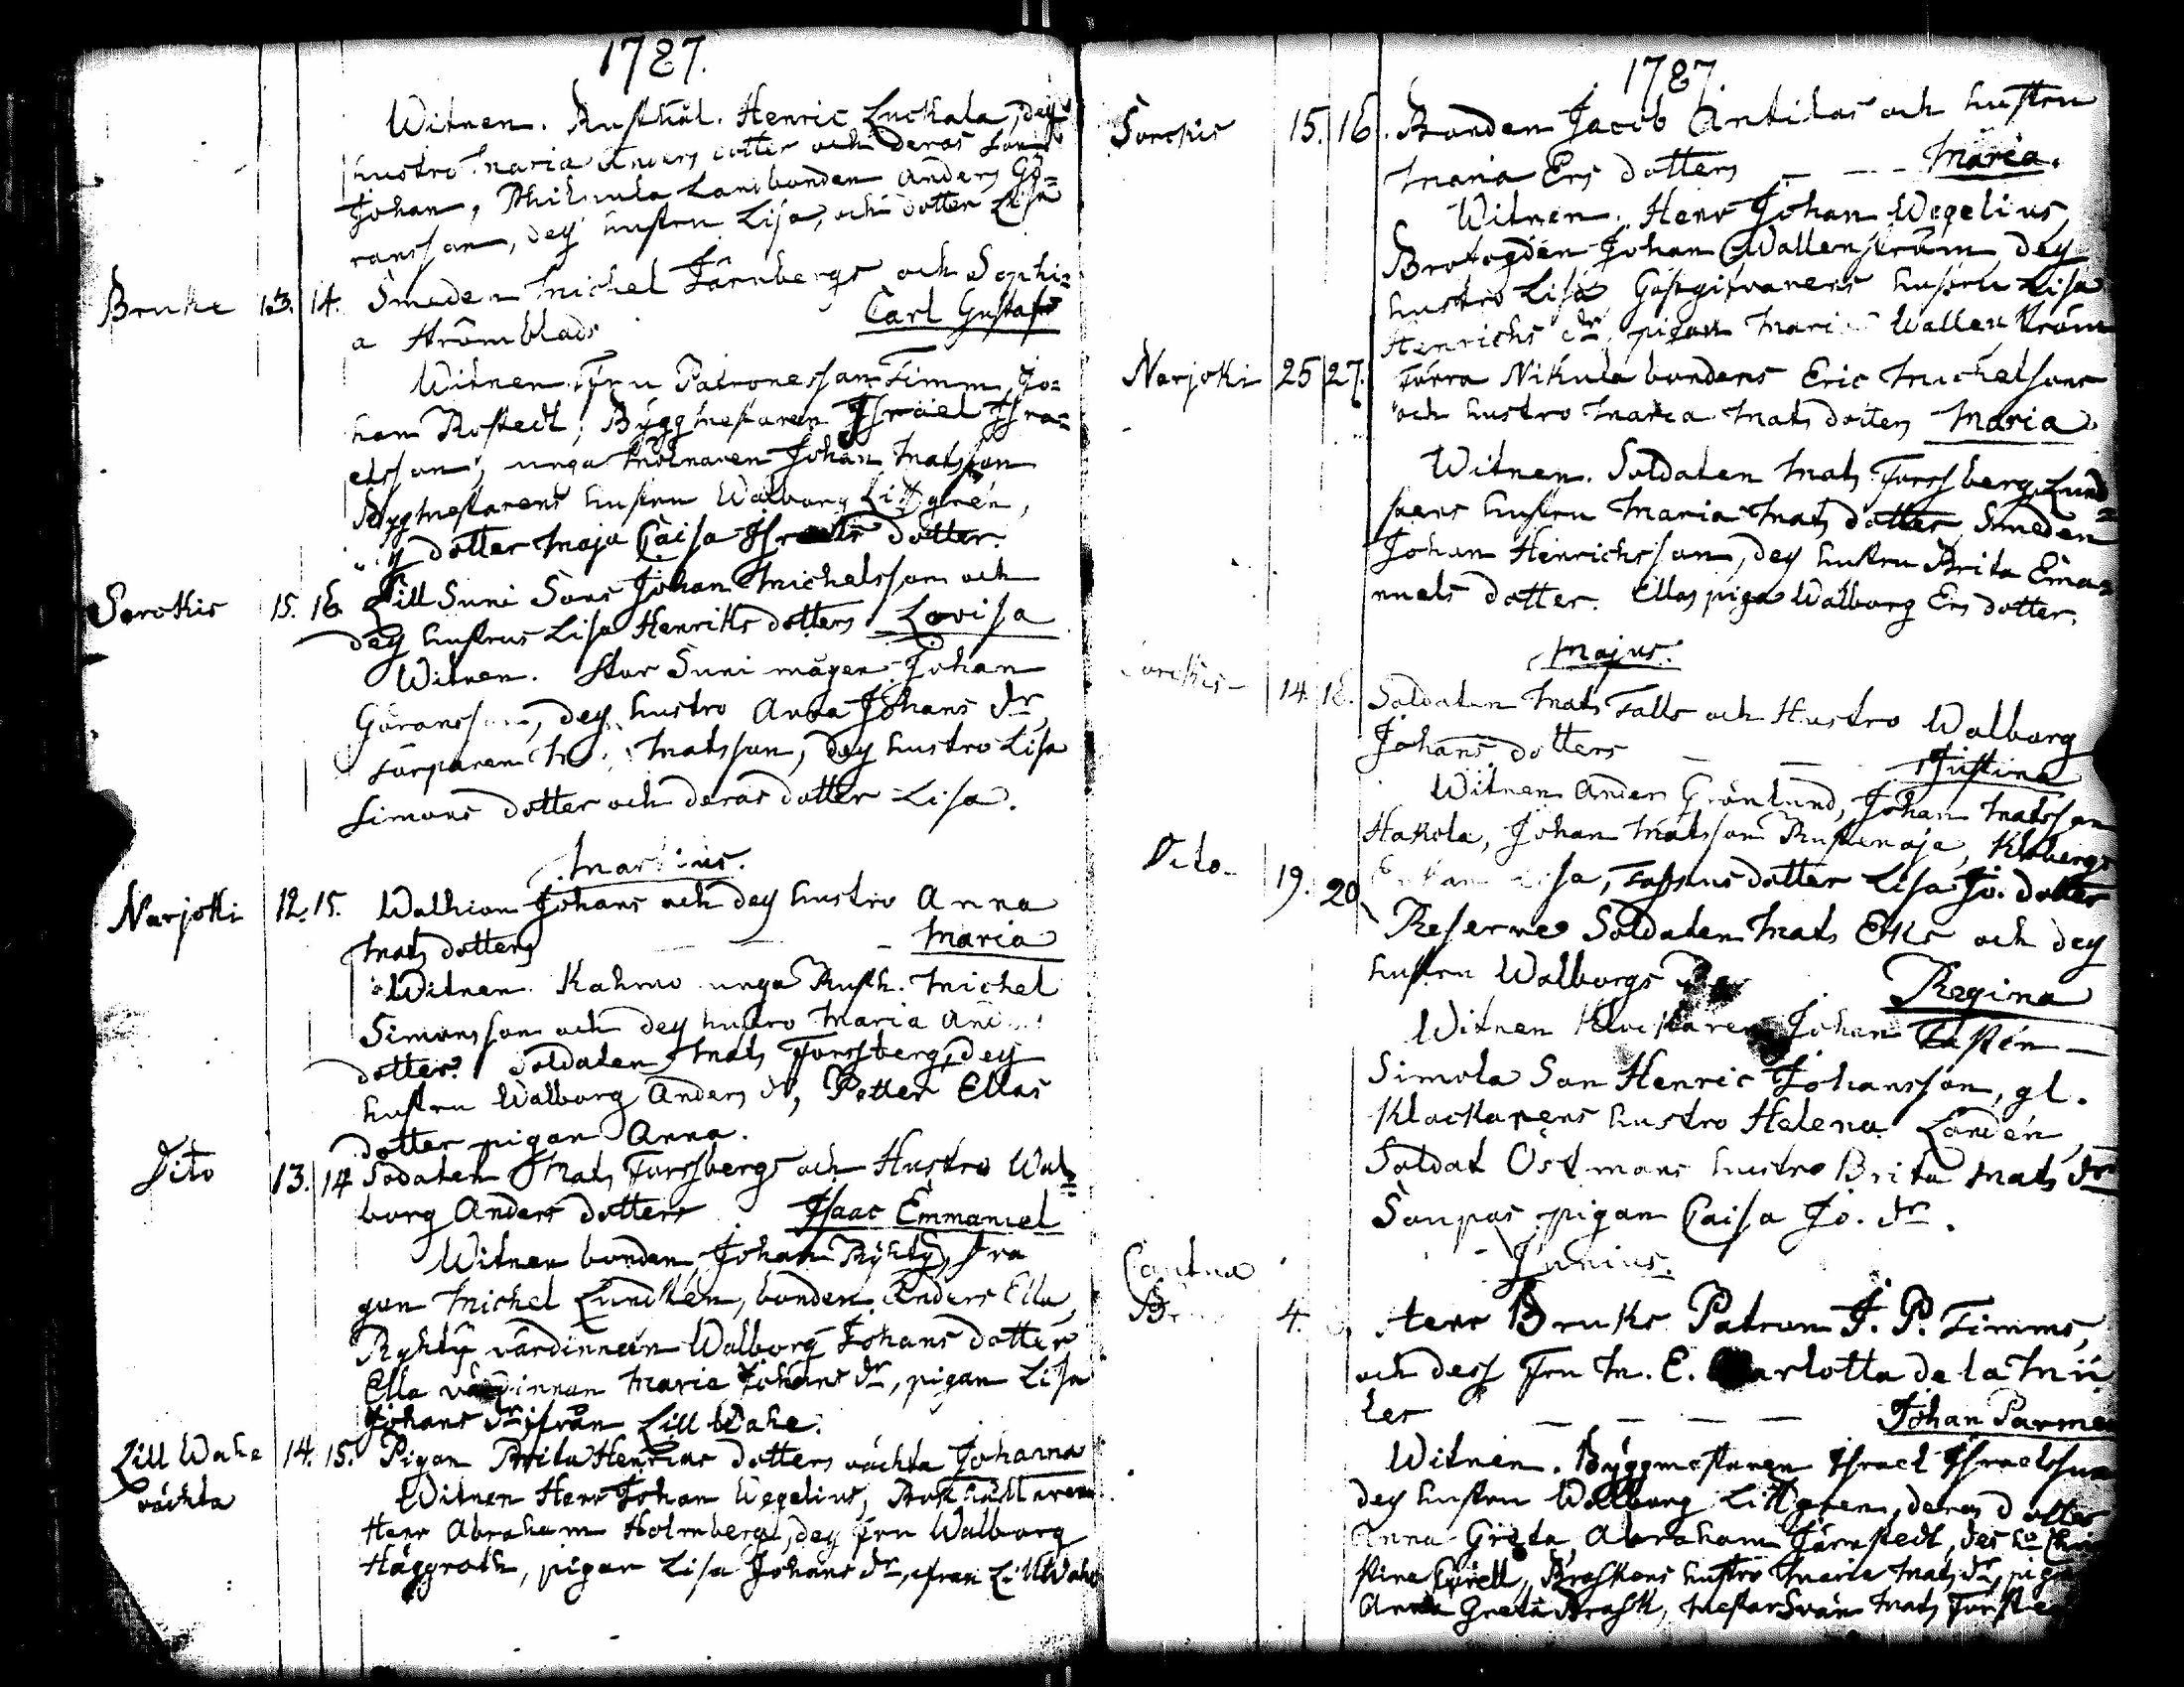 1787.
Witnen. Rusthål. Henric Luckala, deß
hustro Maria Anders dotter och deras Son
Johan, Landbonden Anders Gö=
ransson, deß hustru Lisa, och dotter Lisa
Bruke 13. 14. Smeden Michel Järnbergs och Sophi=
a Strömblads Carl Gustaf
Witnen. Fru Patronessan Timm, Jo=
han Rostedt, Byggmestaren Israel Isra=
elsson, unga Molnaren Johan Matsson
Bygmestarens hustru Walborg Littgren,
dotter Maja Caisa Israels dotter.
Sorokis 15. 16 Lill Suni Sons Johan Michelsson och
deß hustrus Lisa Henriks dotters Lovisa
Witnen. Stor Suni mågen Johan
Göransson, deß hustro Anna Johans dr
Torparen Matsson, deß hustro Lisa
Simons dotter och deras dotter Lisa.
Martius.
Narjoki 12. 15. Walhion Johans och deß hustro Anna
Mats dotters - Maria
Witnen. Kahmo unga Rusth. Michel
Simonsson och deß hustro Maria
dotter. Soldaten Mats Forssberg, deß
hustru Walborg Anders dr, Petter Ellas
dotter pigan Anna.
Dito 13. 14 Sodaten Mats Forssbergs och Hustro Wal=
borg Anders dotters Isaac Emmanuel
Witnen bonden Johan Ryhty, dra
gon Michel Lundsten, bonden Anders Ella,
Ryhty värdinnan Walborg Johans dotter
Ella värdinnan Maria Johans dr, pigan Lisa
Johans dr ifrån Lill Wahe.
Lill Wahe 14. 15. Pigan Brita Henrics dotters oächta Johanna
oächta Witnen Herr Johan Wegelius,
Herr Abraham Holmberg, deß fru Walborg
Häggroth, pigan Lisa Johans dr, ifran Lill Wahe
1787.
Sorokis 15. 16. Bonden Jacob Antilas och hustru
Maria Ers dotters - - - Maria.
Witnen. Herr Johan Wegelius,
Brofogden Johan Wallenström, deß
hustro Lisa Gästgifvarens hustru Lisa
Henrichs dr, pigan Maria Wallenström
Narjoki 25 27. Förra Nikula bondens Eric Michelsons
och hustro Maria Mats dotters Maria
Witnen. Soldaten Mats Forssberg, Lund
stens hustru Maria Mats dotter, Smeden
Johan Henrichsson, deß hustru Brita Ema=
nuels dotter. Ellas piga Walborg Ers dotter.
Majus.
14. 18. Soldaten Mats Falls och Hustro Walborg
Johans dotters — — Justina
Witnen Anders Grönlund, Johan Matsson
Hakola, Johan Matsson Rustenoja,
Dito 19. 20 Lisa, dotter Lisa Jo. dotter
Reserve Soldaten Mats Eks och deß
hustru Walborgs Regina
Witnen Klockaren Johan
Simola Son Henric Johansson, gl.
Klockarens hustro Helena Landén,
Soldat Östmans hustro Brita Mats dr
Soupas pigan Caisa Jo. dr.
Junius.
Cauhva
4. Herr Bruks Patron J. P. Timms,
och dess Fru M. E. Charlotta de la Mü
les — — — — Johan Parme
Witnen. Byggmestaren Israel Israelsson
deß hustru Walborg Littgren, deras dotter
Anna Greta, Abraham Järnstedt,
stina hustro Maria Mats dr, piga
Anna Greta Brask, Mestarsven Mats